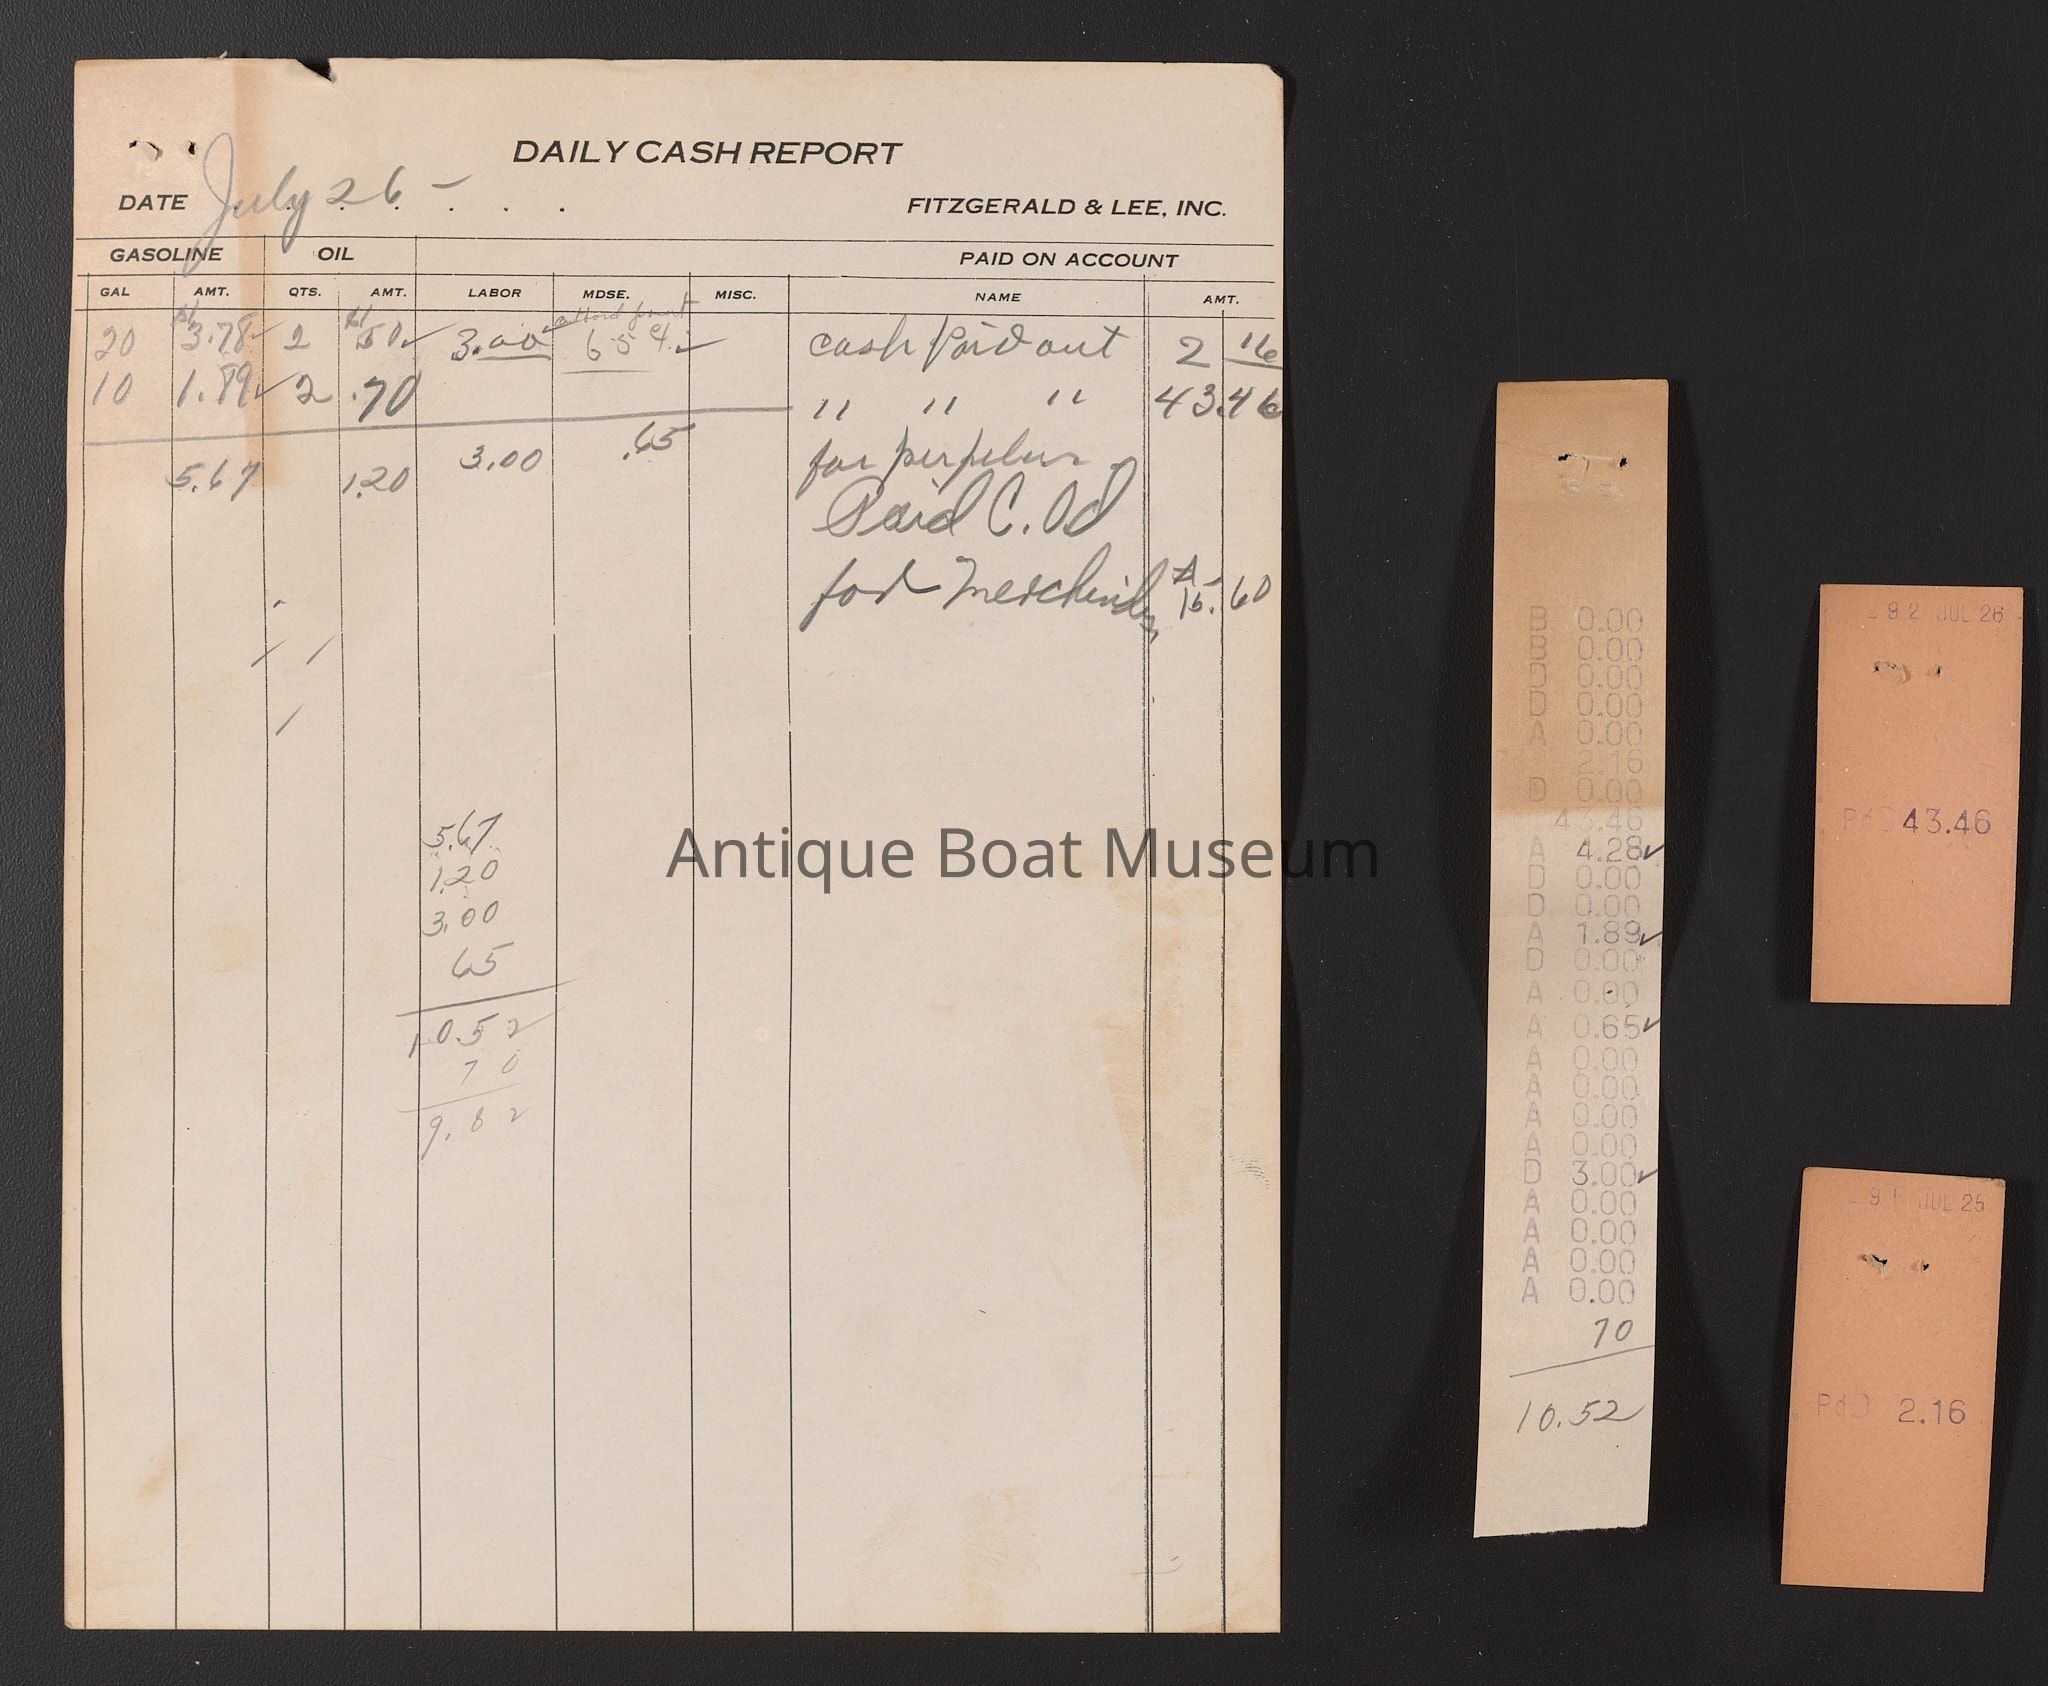 DAILY CASH REPORT
DATE July 26 -
FITZGERALD & LEE, INC.
GASOLINE OIL PAID ON ACCOUNT
GAL AMT. QTS. AMT. LABOR MDSE. MISC. NAME AMT.
20 3.78 2 50 3.00 65¢ cash paid out 2 16
10 1.89 2 .70 " " " 43.46
5.67 1.20 3.00 .65 for
Paid C. Od
for 15.60
5.67
1.20
3.00
65
10.52
70
9.82
Antique Boat Museum
B 0.00
B 0.00
D 0.00
D 0.00
A 0.00
2.16
D 0.00
43.46
A 4.28
D 0.00
D 0.00
A 1.89
D 0.00
A 0.00
A 0.65
A 0.00
A 0.00
A 0.00
A 0.00
D 3.00
A 0.00
A 0.00
A 0.00
A 0.00
70
10.52
292 JUL 26
PdD 43.46
291 JUL 25
PdD 2.16